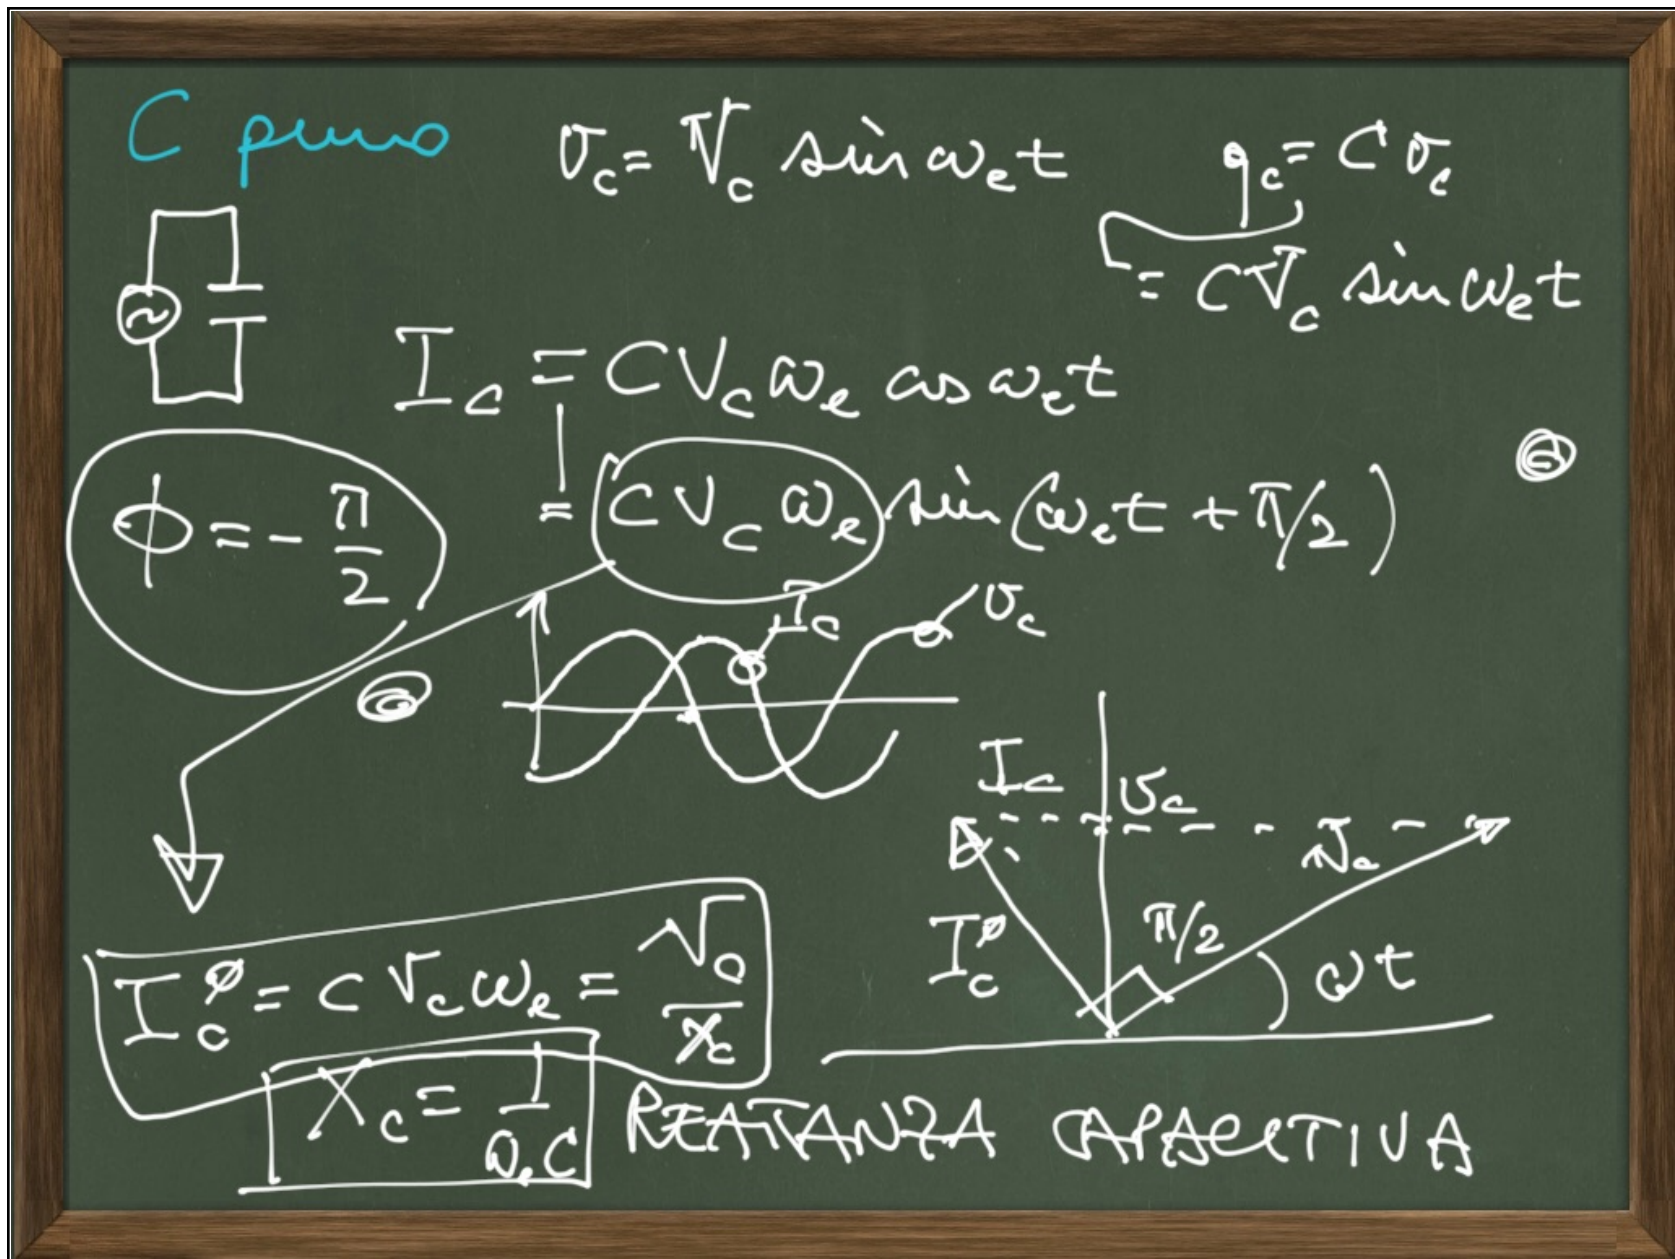 C puro
v_c = V_c sin ω_e t
q_c = C v_c
= C V_c sin ω_e t
I_c = C V_c ω_e cos ω_e t
= C V_c ω_e sin (ω_e t + π/2)
ϕ = - π/2
I_c
v_c
I_c
v_c
V_c
I_c^ø
π/2
ωt
I_c^ø = C V_c ω_e = V_c / X_c
X_c = 1 / ω_e C
REATTANZA CAPACITIVA